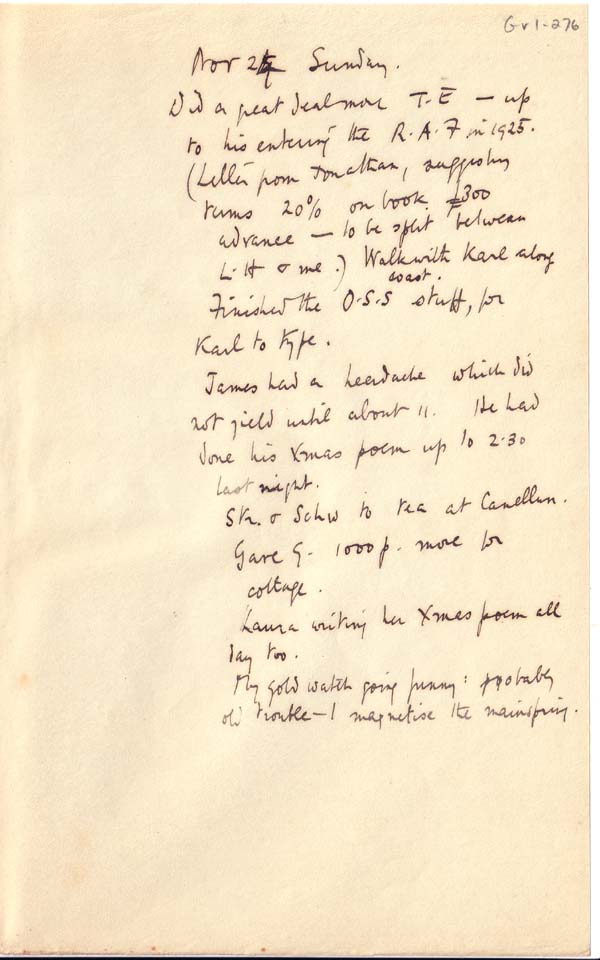 Gv1-276
Nov 24 Sunday.
Did a great deal more T-E — up
to his entering the R.A.F in 1925.
(Letter from Jonathan, suggesting
terms 20% on book. £300
advance — to be split between
L-H & me.) Walk with Karl along
coast.
Finished the O-S-S stuff, for
Karl to type.
James had a headache which did
not yield until about 11. He had
done his Xmas poem up to 2-30
last night.
Str. & Schw to tea at Canellun.
Gave G. 1000 p. more for
cottage.
Laura writing her Xmas poem all
day too.
My gold watch going funny: probably
old trouble — I magnetise the mainspring.